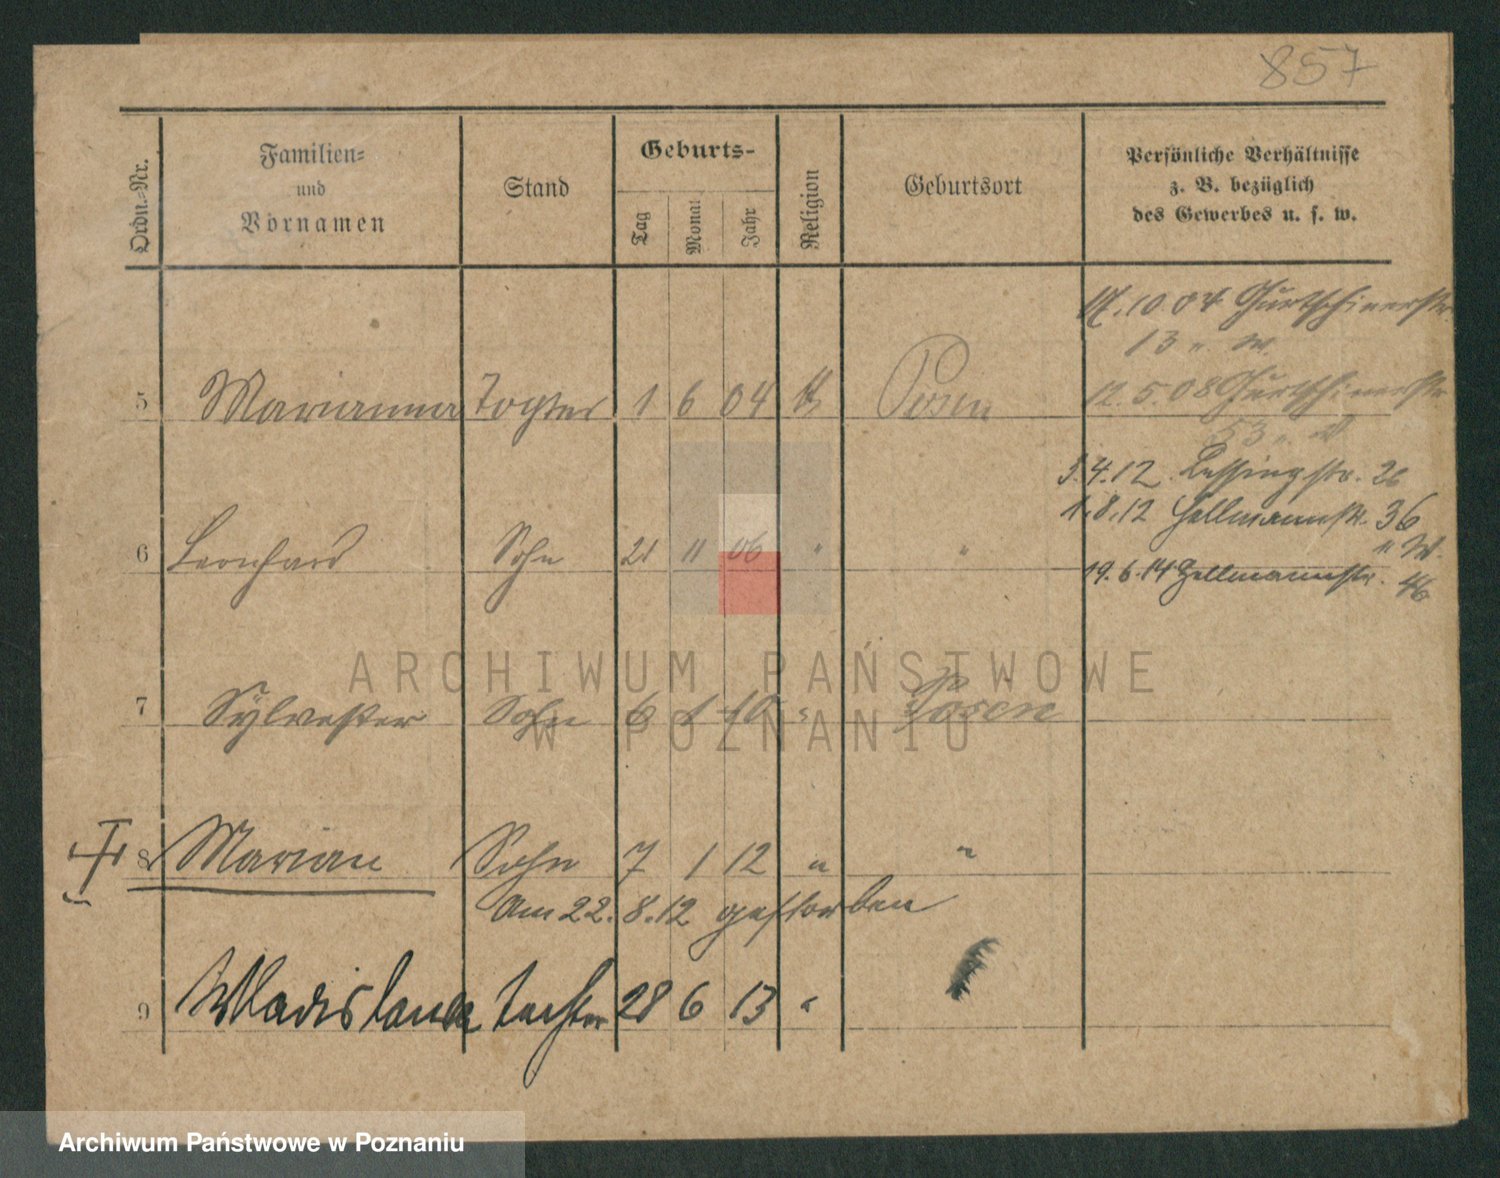 857
Ordn.-Nr.
Familien-
und
Vornamen
Stand
Geburts-
Tag
Monat
Jahr
Religion
Geburtsort
Persönliche Verhältnisse
z. B. bezüglich
des Gewerbes u. s. w.
10 04 Gurtschinerstr
13 " W.
5 Marianna Tochter 1 6 04 Posen
12.5.08 Gurtschinerstr
53 " W
3.4.12. Lessingstr. 26
1.8.12 Hellmannstr. 36
" W.
6 Leonhard Sohn 21 11 06 " "
19.6.14 Hellmannstr. 46
7 Sylvester Sohn 6 1 10 " Posen
8 Marian Sohn 7 1 12 " "
Am 22.8.12 gestorben
9 Wladislawa Tochter 28 6 13 " "
ARCHIWUM PAŃSTWOWE
W POZNANIU
Archiwum Państwowe w Poznaniu